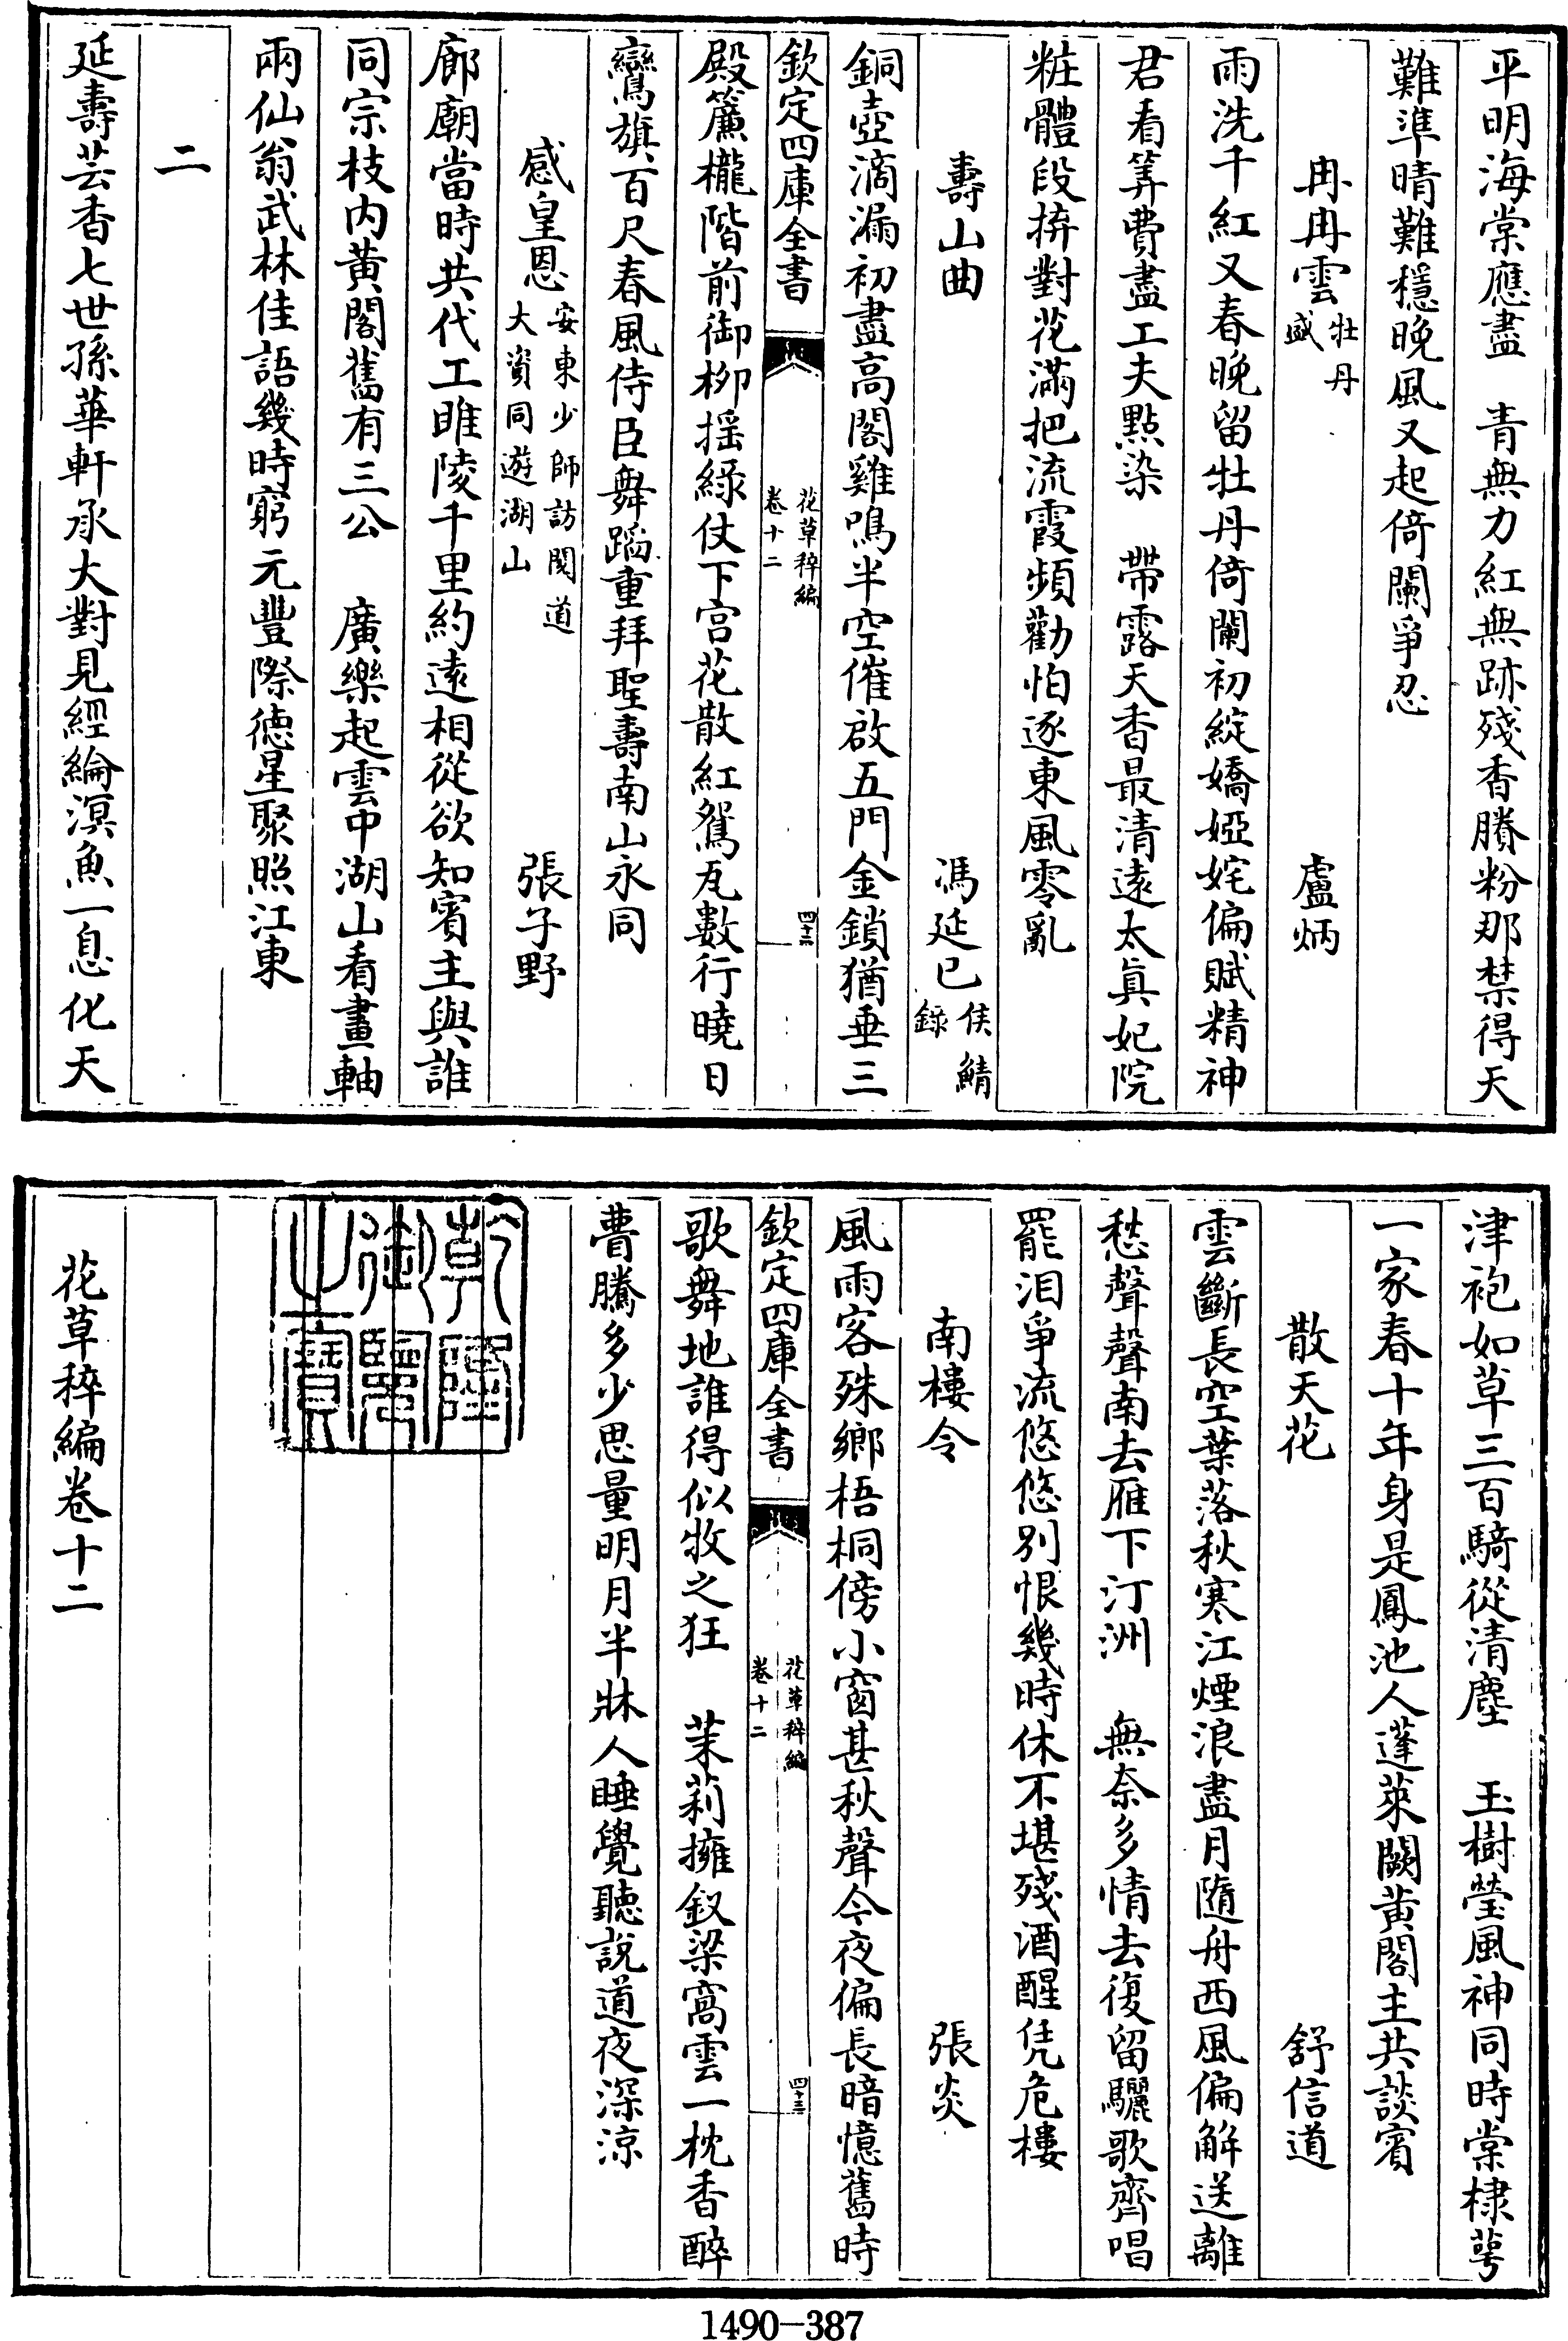 平明海棠應盡　青無力紅無跡殘香賸粉那禁得天
難準晴難穩晚風又起倚闌爭忍
冉冉雲牡丹盛　盧炳
雨洗千紅又春晚留牡丹倚闌初綻嬌婭姹偏賦精神
君看筭費盡工夫點染　帶露天香最清遠太真妃院
粧體段拚對花滿把流霞頻勸怕逐東風零亂
壽山曲　馮延巳侯鯖錄
銅壺滴漏初盡高閣雞鳴半空催啟五門金鎖猶垂三
欽定四庫全書　花草稡編卷十二　四十二
殿簾櫳階前御柳摇綠仗下宫花散紅鴛瓦數行曉日
鸞旗百尺春風侍臣舞蹈重拜聖壽南山永同
感皇恩安東少師訪閱道大資同遊湖山　張子野
廊廟當時共代工睢陵千里約遠相從欲知賓主與誰
同宗枝内黄閣舊有三公　廣樂起雲中湖山看畫軸
兩仙翁武林佳語幾時窮元豐際德星聚照江東
二
延壽芸香七世孫華軒承大對見經綸溟魚一息化天
津袍如草三百騎從清塵　玉樹瑩風神同時棠棣萼
一家春十年身是鳳池人蓬萊闕黄閣主共談賓
散天花　舒信道
雲斷長空葉落秋寒江煙浪盡月隨舟西風偏解送離
愁聲聲南去雁下汀洲　無奈多情去復留驪歌齊唱
罷泪爭流悠悠别恨幾時休不堪殘酒醒凭危樓
南樓令　張炎
風雨客殊鄉梧桐傍小窗甚秋聲今夜偏長暗憶舊時
欽定四庫全書　花草稡編卷十二　四十三
歌舞地誰得似牧之狂　茉莉擁釵梁窩雲一枕香醉
瞢騰多少思量明月半牀人睡覺聽說道夜深涼
乾隆御覽之寶
花草稡編卷十二
1490-387